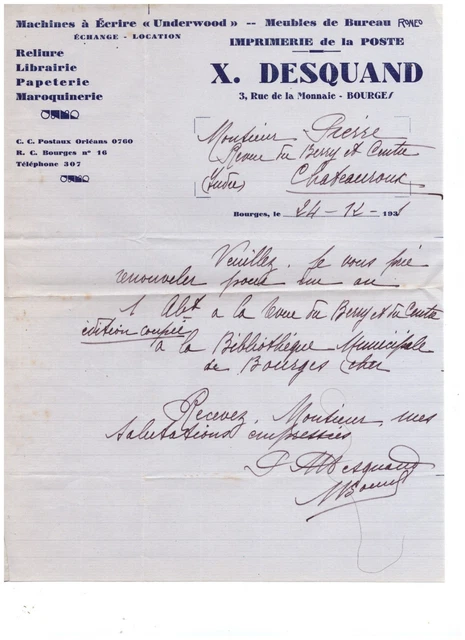 Machines à Écrire « Underwood » -- Meubles de Bureau RONEO
ÉCHANGE - LOCATION
IMPRIMERIE de la POSTE
Reliure
Librairie
Papeterie
Maroquinerie
X. DESQUAND
3, Rue de la Monnaie - BOURGES
C. C. Postaux Orléans 0760
R. C. Bourges n° 16
Téléphone 307
Monsieur Pierre
Revue du Berry et Centre
(Indre) Chateauroux
Bourges, le 24 - 12 - 193
Veuillez, je vous prie
renouveler pour un an
1 Abt à la Revue du Berry et du Centre
édition
à la Bibliothèque Municipale
de Bourges Cher
Recevez, Monsieur, mes
salutations empressées
Desquand